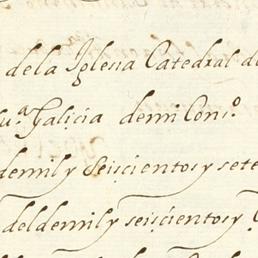 dela Iglesia Catedral de
Nu.ª Galicia demi Cons.º
demil y seiscientos y sete
deldemil y seiscientos y